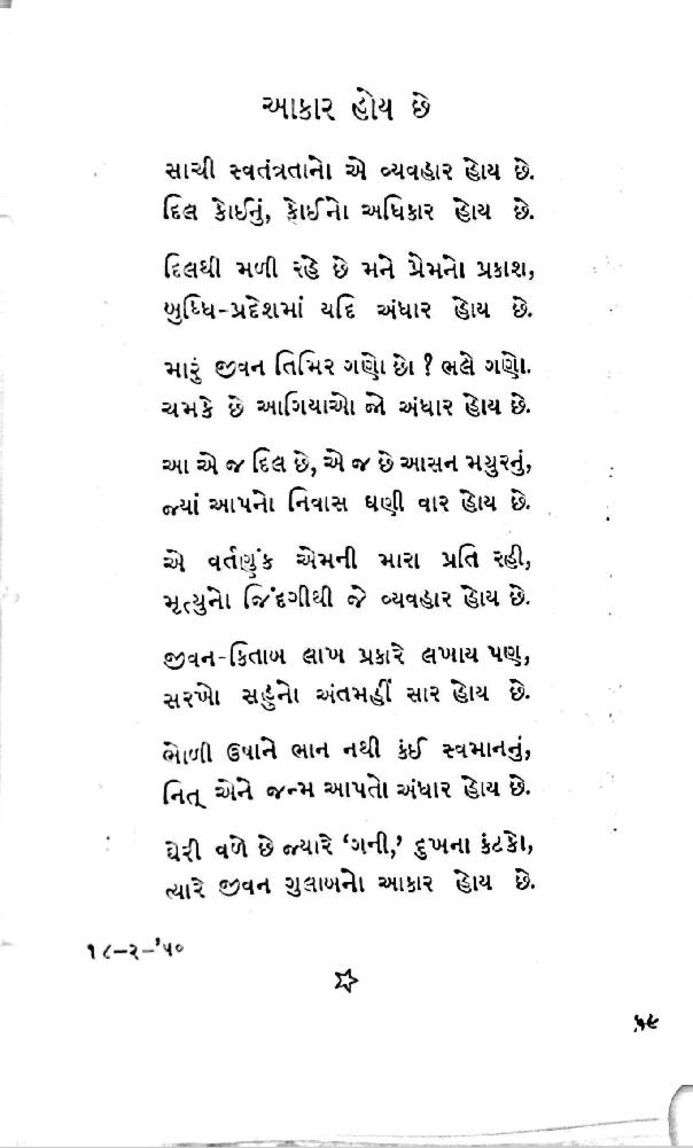 આકાર હોય છે
સાચી સ્વતંત્રતાનો એ વ્યવહાર હોય છે.
દિલ કોઈનું, કોઈનો અધિકાર હોય છે.
દિલથી મળી રહે છે મને પ્રેમનો પ્રકાશ,
બુધ્ધિ-પ્રદેશમાં યદિ અંધાર હોય છે.
મારું જીવન તિમિર ગણો છો ? ભલે ગણો.
ચમકે છે આગિયાઓ જો અંધાર હોય છે.
આ એ જ દિલ છે, એ જ છે આસન મયુરનું,
જ્યાં આપનો નિવાસ ઘણી વાર હોય છે.
એ વર્તણુંક એમની મારા પ્રતિ રહી,
મૃત્યુનો જિંદગીથી જે વ્યવહાર હોય છે.
જીવન-કિતાબ લાખ પ્રકારે લખાય પણ,
સરખો સહુંનો અંતમહીં સાર હોય છે.
ભોળી ઉષાને ભાન નથી કંઈ સ્વમાનનું,
નિત્ એને જન્મ આપતો અંધાર હોય છે.
ઘેરી વળે છે જ્યારે ‘ગની,’ દુખના કંટકો,
ત્યારે જીવન ગુલાબનો આકાર હોય છે.
૧૮–૨–’૫૦
૫૯